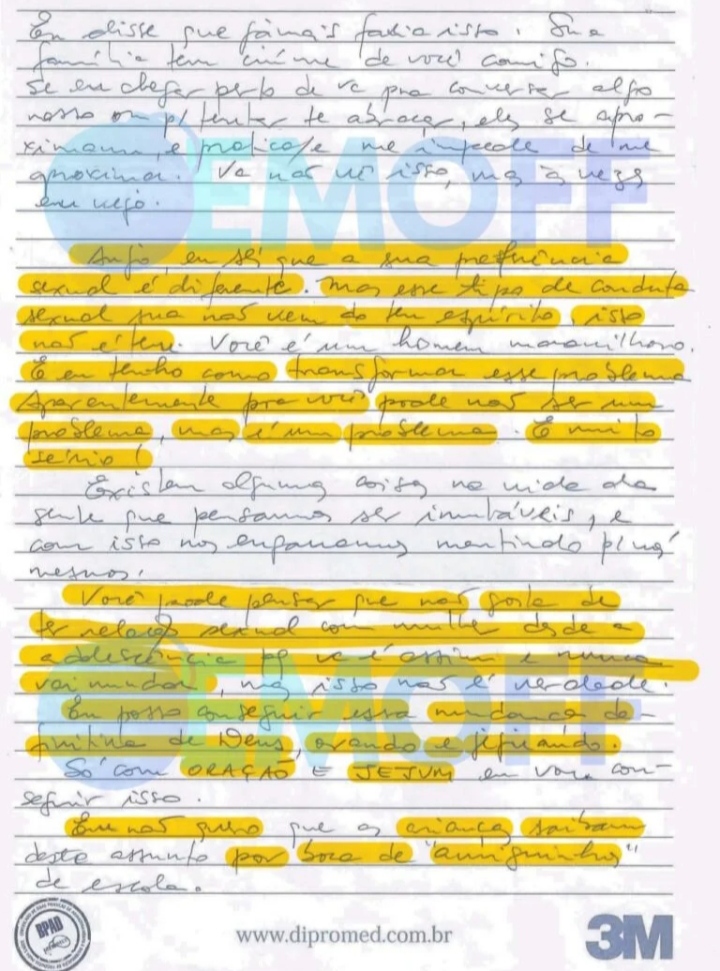 Eu disse que jamais faria isso. Sua
família tem ciúme de você comigo.
Se eu chegar perto de vc pra conversar algo
nosso ou p/ tentar te abraçar, eles se apro-
ximam, e me impede de me
aproximar. Vc não vê isso, mas às vezes
eu vejo.
Anjo, eu sei que a sua preferência
sexual é diferente. Mas esse tipo de conduta
sexual sua não vem do teu espírito, isso
não é teu. Você é um homem maravilhoso.
E eu tenho como transformar esse problema
Aparentemente pra você pode não ser um
problema, mas é um problema. É muito
sério!
Existem algumas coisas na vida da
gente que pensamos ser imutáveis, e
com isso nos enganamos mentindo p/ nós
mesmos.
Você pode pensar que não gosta de
ter relação sexual com mulher desde a
adolescência pq vc é assim e nunca
vai mudar, mas isso não é verdade.
Eu posso conseguir essa mudança de-
finitiva de Deus, orando e jejuando.
Só com ORAÇÃO E JEJUM eu vou con-
seguir isso.
Eu não quero que as crianças saibam
deste assunto por boca de "amiguinho"
de escola.
EMOFF
EMOFF
BPAD
www.dipromed.com.br
3M